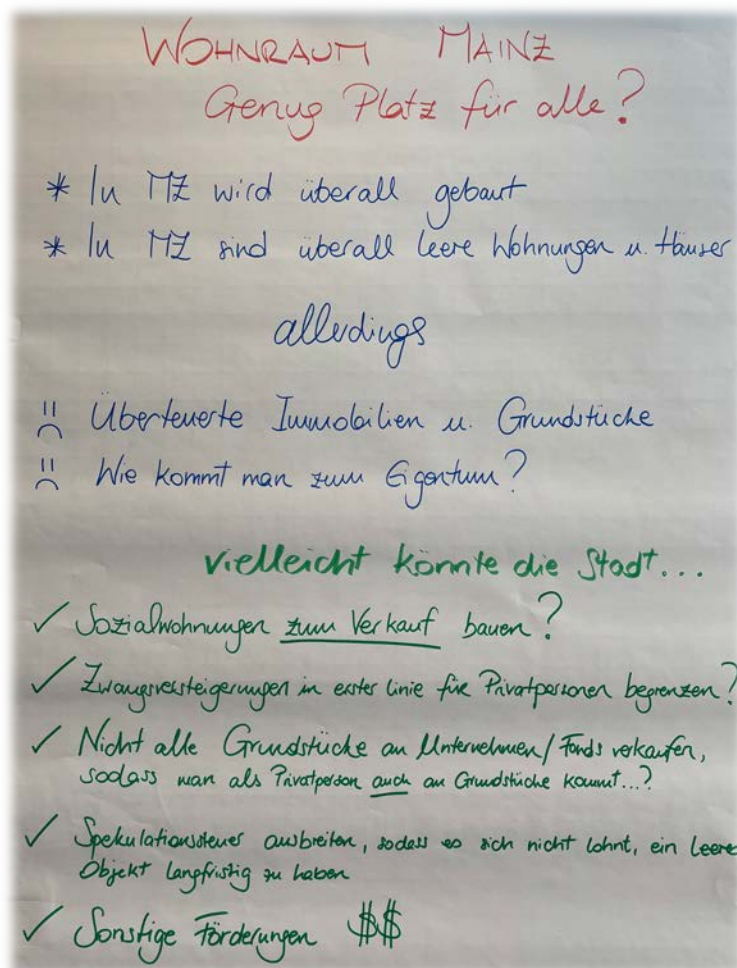 WOHNRAUM MAINZ
Genug Platz für alle?
* In MZ wird überall gebaut
* In MZ sind überall leere Wohnungen u. Häuser
allerdings
Überteuerte Immobilien u. Grundstücke
Wie kommt man zum Eigentum?
vielleicht könnte die Stadt...
✓ Sozialwohnungen zum Verkauf bauen?
✓ Zwangsversteigerungen in erster Linie für Privatpersonen begrenzen?
✓ Nicht alle Grundstücke an Unternehmen/Fonds verkaufen,
sodass man als Privatperson auch an Grundstücke kommt...?
✓ Spekulationssteuer ausbreiten, sodass es sich nicht lohnt, ein leere
Objekt langfristig zu haben
✓ Sonstige Förderungen $$